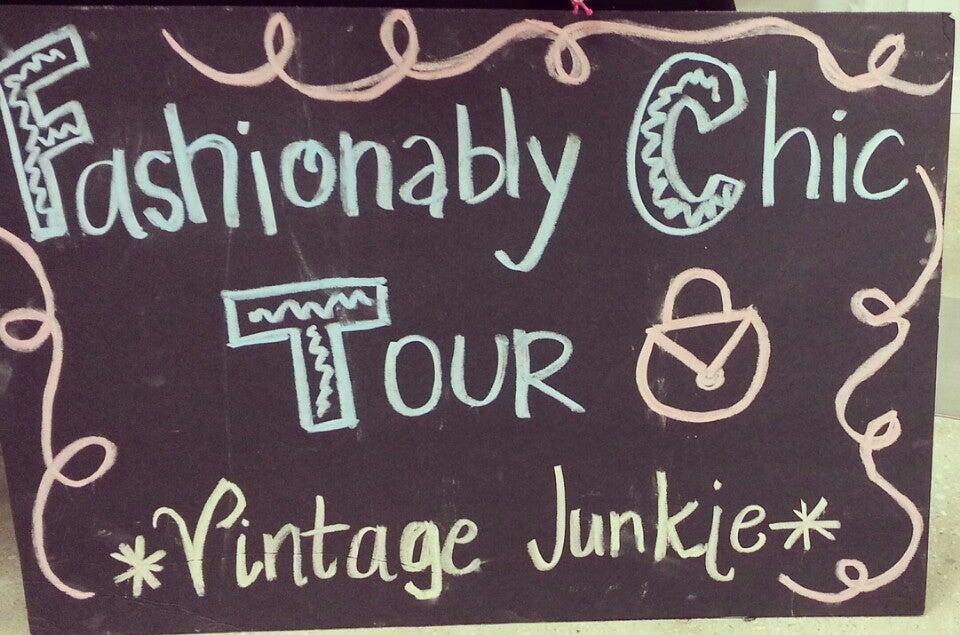 Fashionably Chic
TOUR
*Vintage Junkie*